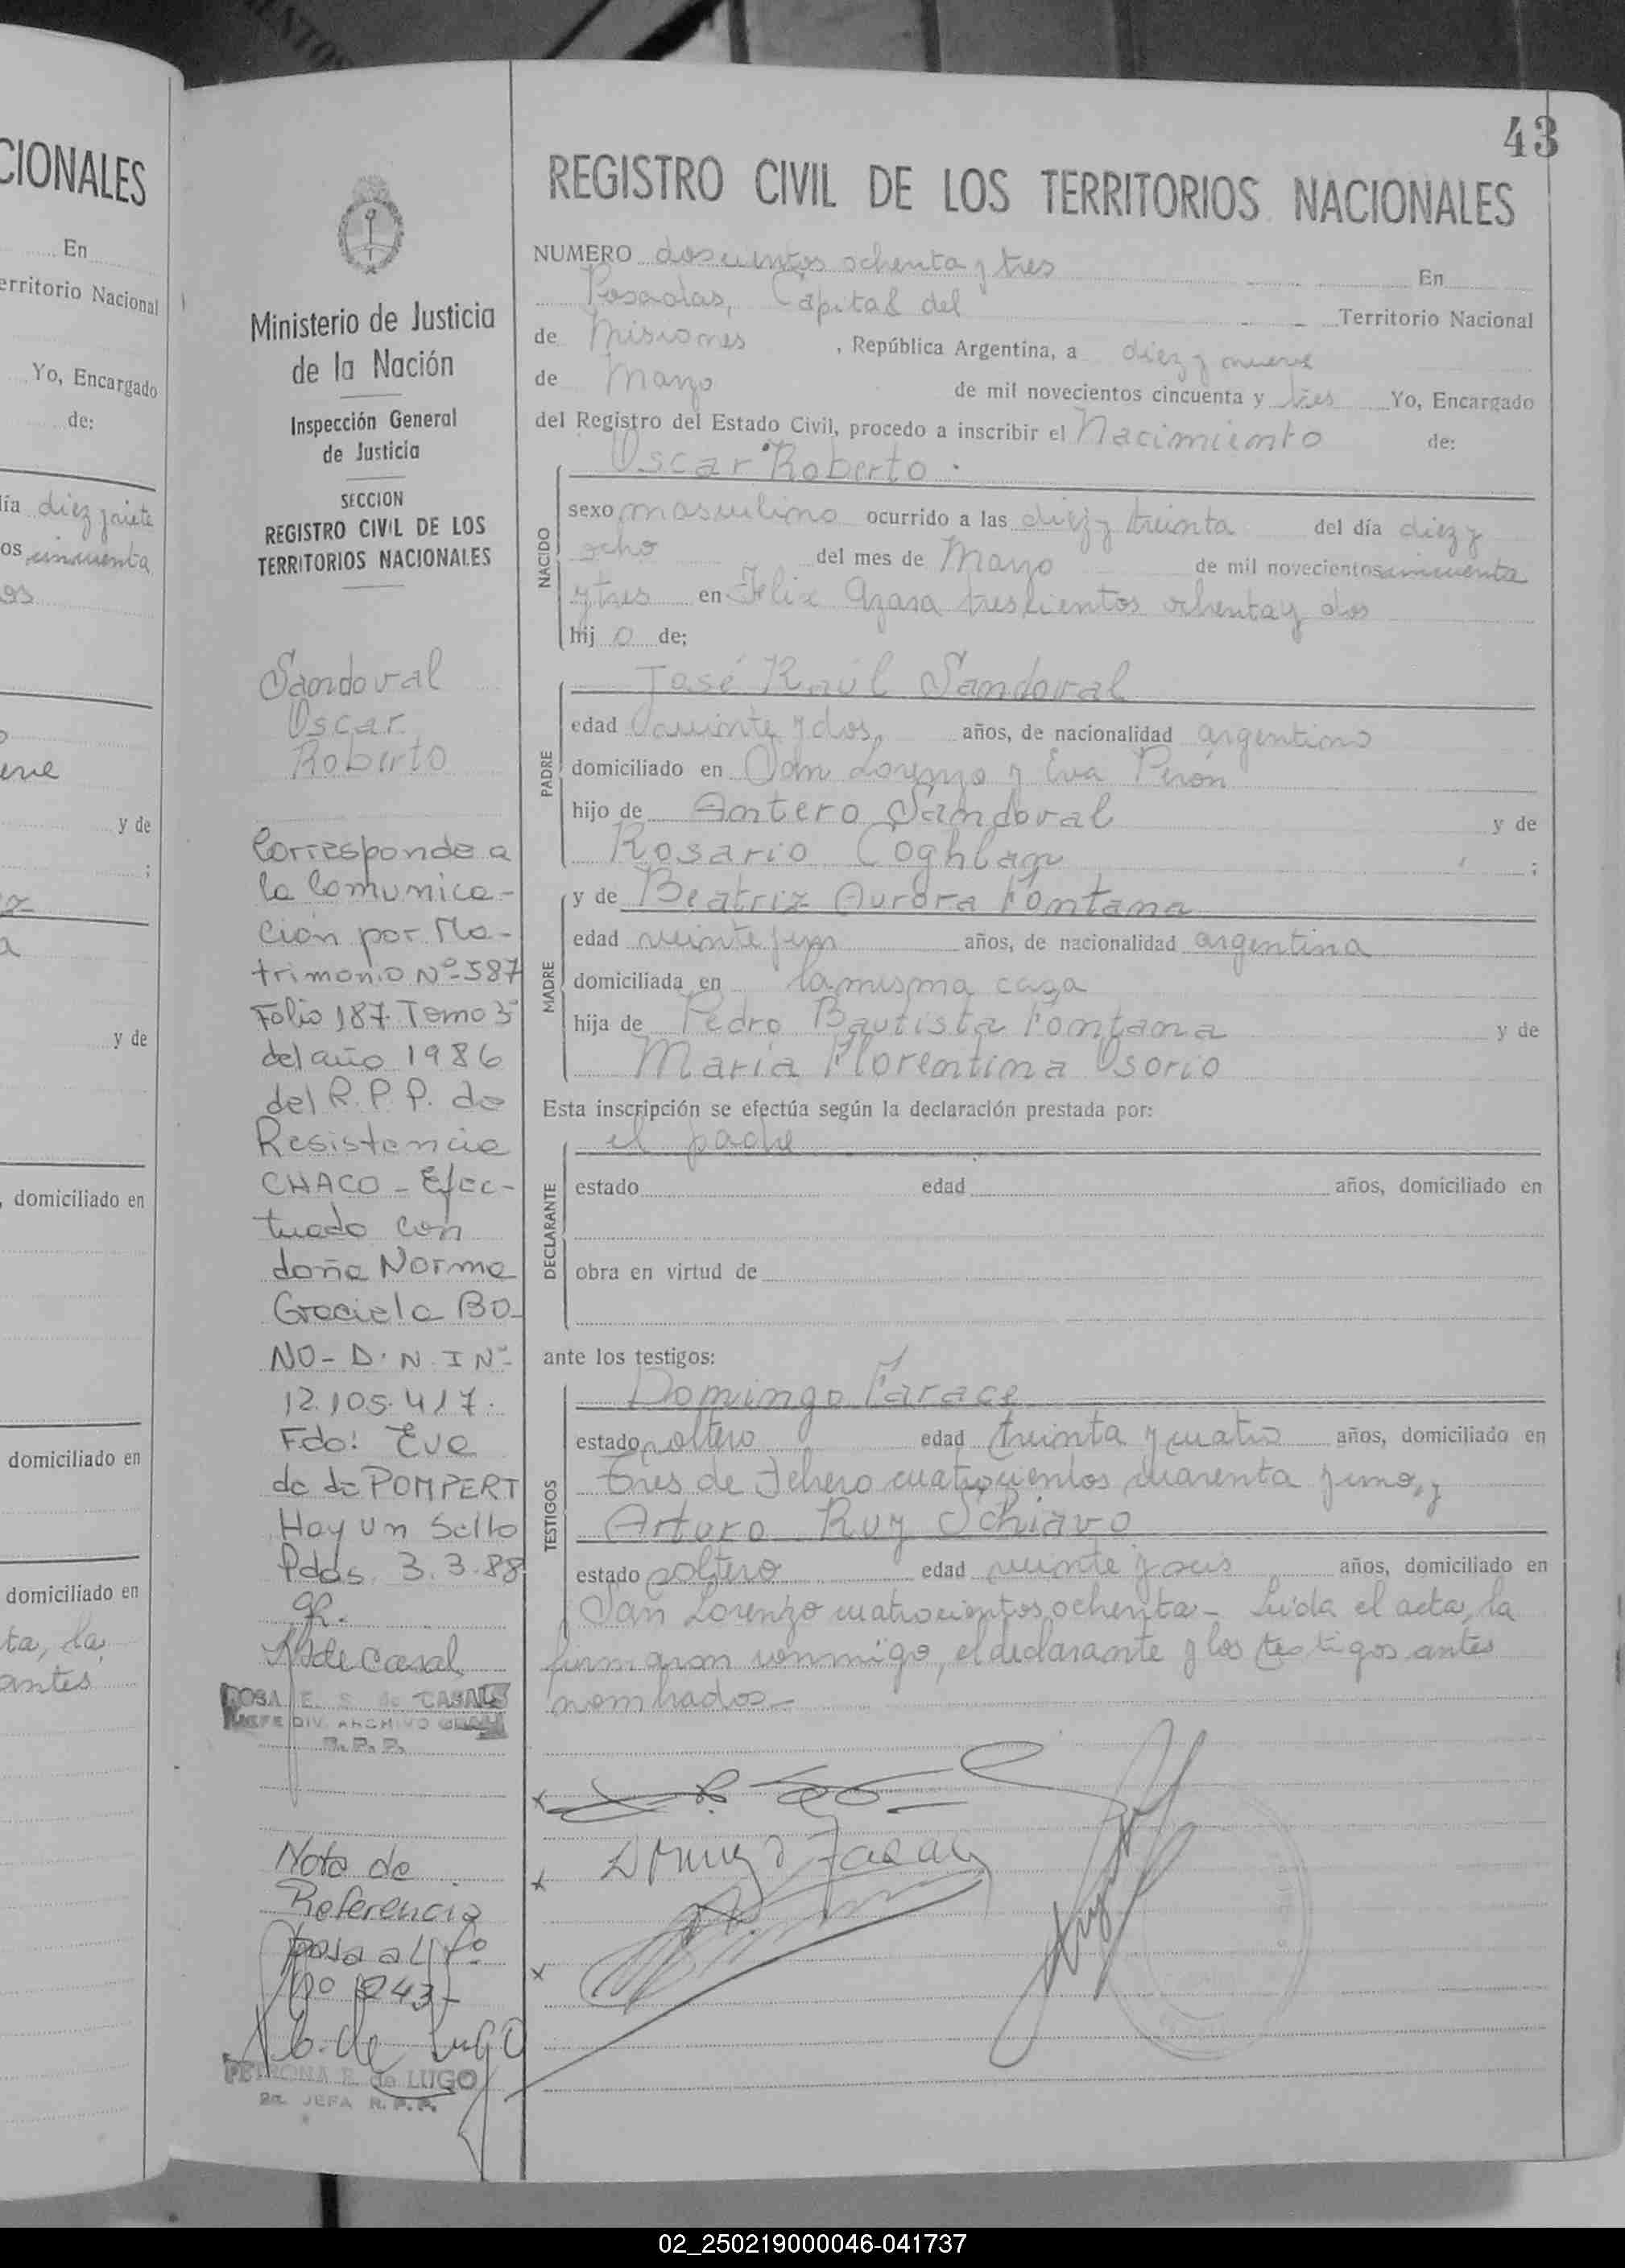 CIONALES
En
erritorio Nacional
Yo, Encargado
de:
ía diez y siete
os cincuenta
os
y de
y de
, domiciliado en
domiciliado en
domiciliado en
ta, la
antes
Ministerio de Justicia
de la Nación
Inspección General
de Justicia
SECCION
REGISTRO CIVIL DE LOS
TERRITORIOS NACIONALES
Sandoval
Oscar
Roberto
Corresponde a
la Comunica-
ción por Ma-
trimonio Nº-587
Folio 187. Tomo 3º
del año 1986
del R.P.P. de
Resistencia
CHACO - Efec-
tuado con
doña Norma
Graciela BO-
NO - D.N.I Nº-
12.105.417.
Fdo: Eva
de de POMPERT
Hay un Sello
Pdas. 3.3.88
ROSA E. S. de CASALS
JEFE DIV. ARCHIVO GRAL
R.P.P.
Nota de
Referencia
pasa al fº
Nº 243-
b. de Lugo
PETRONA E. de LUGO
2a. JEFA R.P.P.
43
REGISTRO CIVIL DE LOS TERRITORIOS NACIONALES
NUMERO doscientos ochenta y tres En
Posadas, Capital del Territorio Nacional
de Misiones , República Argentina, a diez y nueve
de Marzo de mil novecientos cincuenta y tres Yo, Encargado
del Registro del Estado Civil, procedo a inscribir el Nacimiento de:
Oscar Roberto.
NACIDO
sexo masculino ocurrido a las diez y treinta del día diez y
ocho del mes de Marzo de mil novecientos cincuenta
y tres en Felix Azara trescientos ochenta y dos
hij o de;
José Raúl Sandoval
PADRE
edad veinte y dos, años, de nacionalidad argentino
domiciliado en San Lorenzo y Eva Perón
hijo de Antero Sandoval y de
Rosario Coghlan ;
MADRE
y de Beatriz Aurora Fontana
edad veinte y un años, de nacionalidad argentina
domiciliada en la misma casa
hija de Pedro Bautista Fontana y de
María Florentina Osorio
Esta inscripción se efectúa según la declaración prestada por:
el padre
DECLARANTE
estado edad años, domiciliado en
obra en virtud de
ante los testigos:
Domingo Farace
TESTIGOS
estado soltero edad treinta y cuatro años, domiciliado en
tres de Febrero cuatrocientos cuarenta y uno, y
Arturo Ruy Schiavo
estado soltero edad veinte y seis años, domiciliado en
San Lorenzo cuatrocientos ochenta - Leída el acta, la
firmaron conmigo, el declarante y los testigos antes
nombrados -
02_250219000046-041737